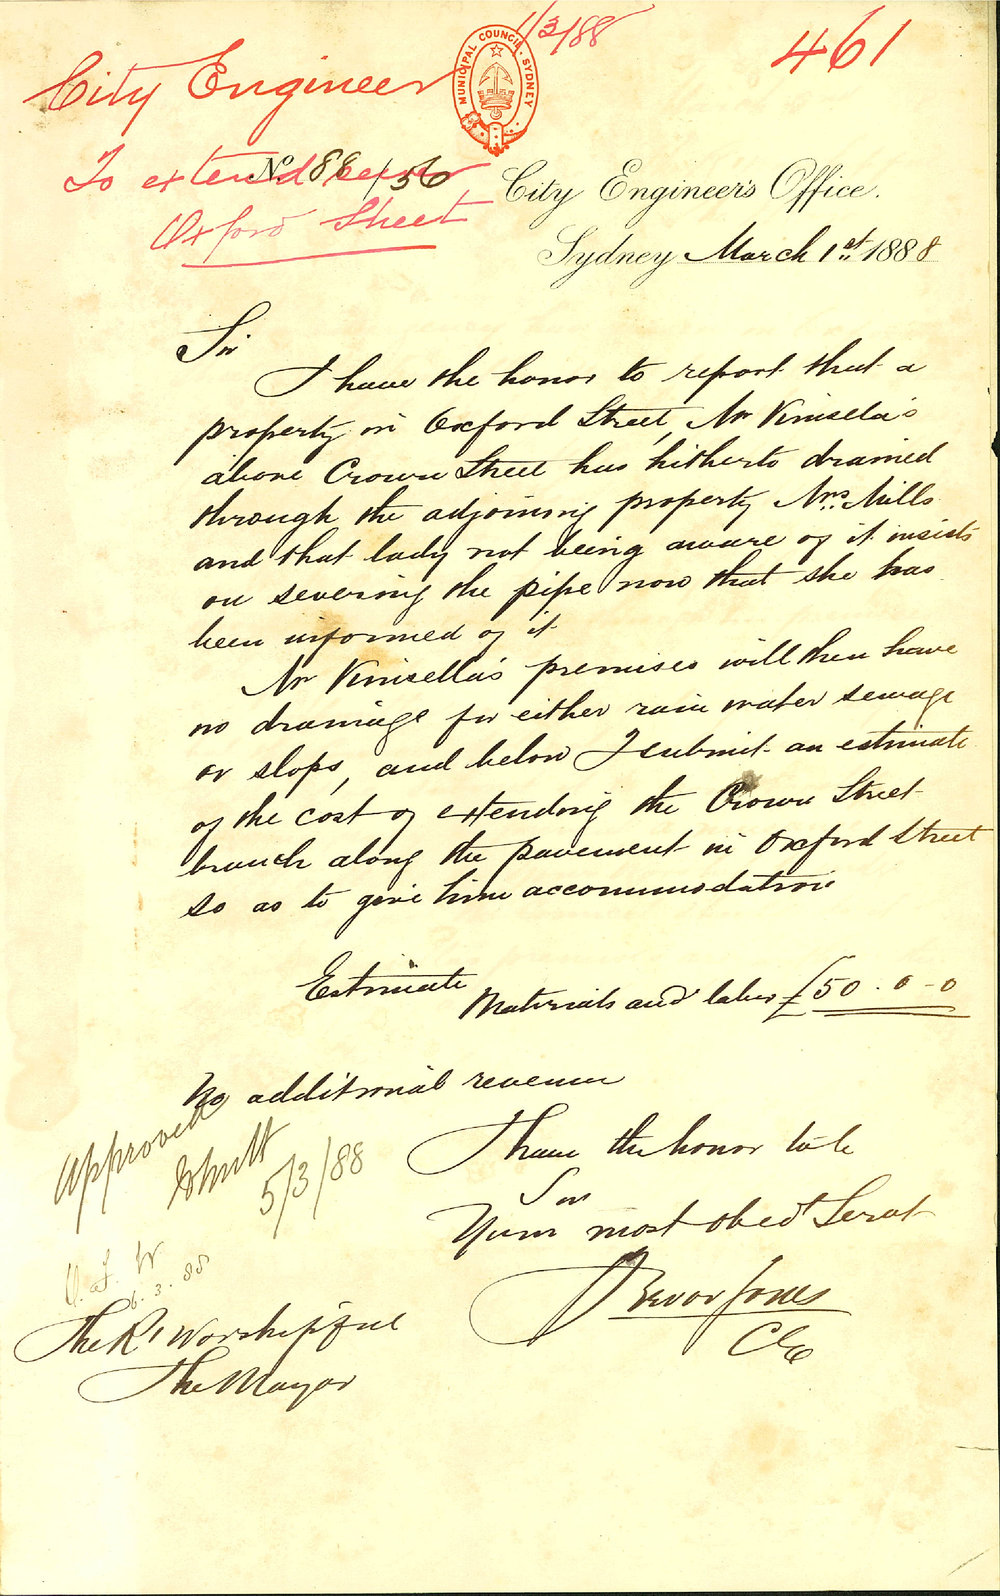 1/3/88
461
City Engineer
MUNICIPAL COUNCIL · SYDNEY
To extend sewer
Oxford Street
No. 88/56
City Engineer's Office.
Sydney March 1st 1888
Sir
I have the honor to report that a
property in Oxford Street, Mr Kinsela's
above Crown Street has hitherto drained
through the adjoining property Mrs. Mills
and that lady not being aware of it insists
on severing the pipe now that she has
been informed of it
Mr Kinsella's premises will then have
no drainage for either rain water sewage
or slops, and below I submit an estimate
of the cost of extending the Crown Street
branch along the pavement in Oxford Street
so as to give him accommodation
Estimate
Materials and labor £50 . 0 - 0
No additional revenue
Approved
5/3/88
I have the honor to be
Sir
Your most obedt Servt
Trevor Jones
CE
6.3.88
The Rt Worshipful
The Mayor